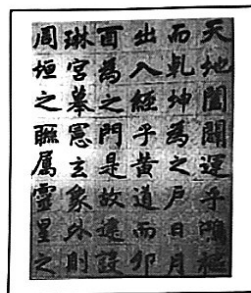 天地闔闢運乎鴻樞
而乾坤為之戶日月
出入經乎黃道而卯
酉為之門是故建設
琳宮摹憲玄象外則
周垣之聯屬靈星之